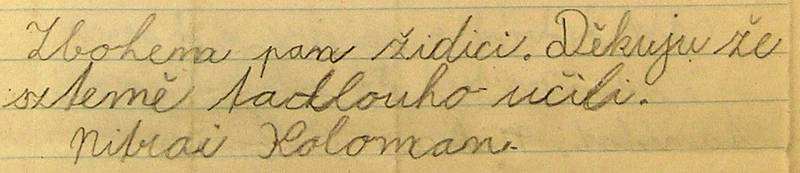 Zbohena pan židici. Děkuju že
sztemě tadlouho učili.
Nitrai Koloman.